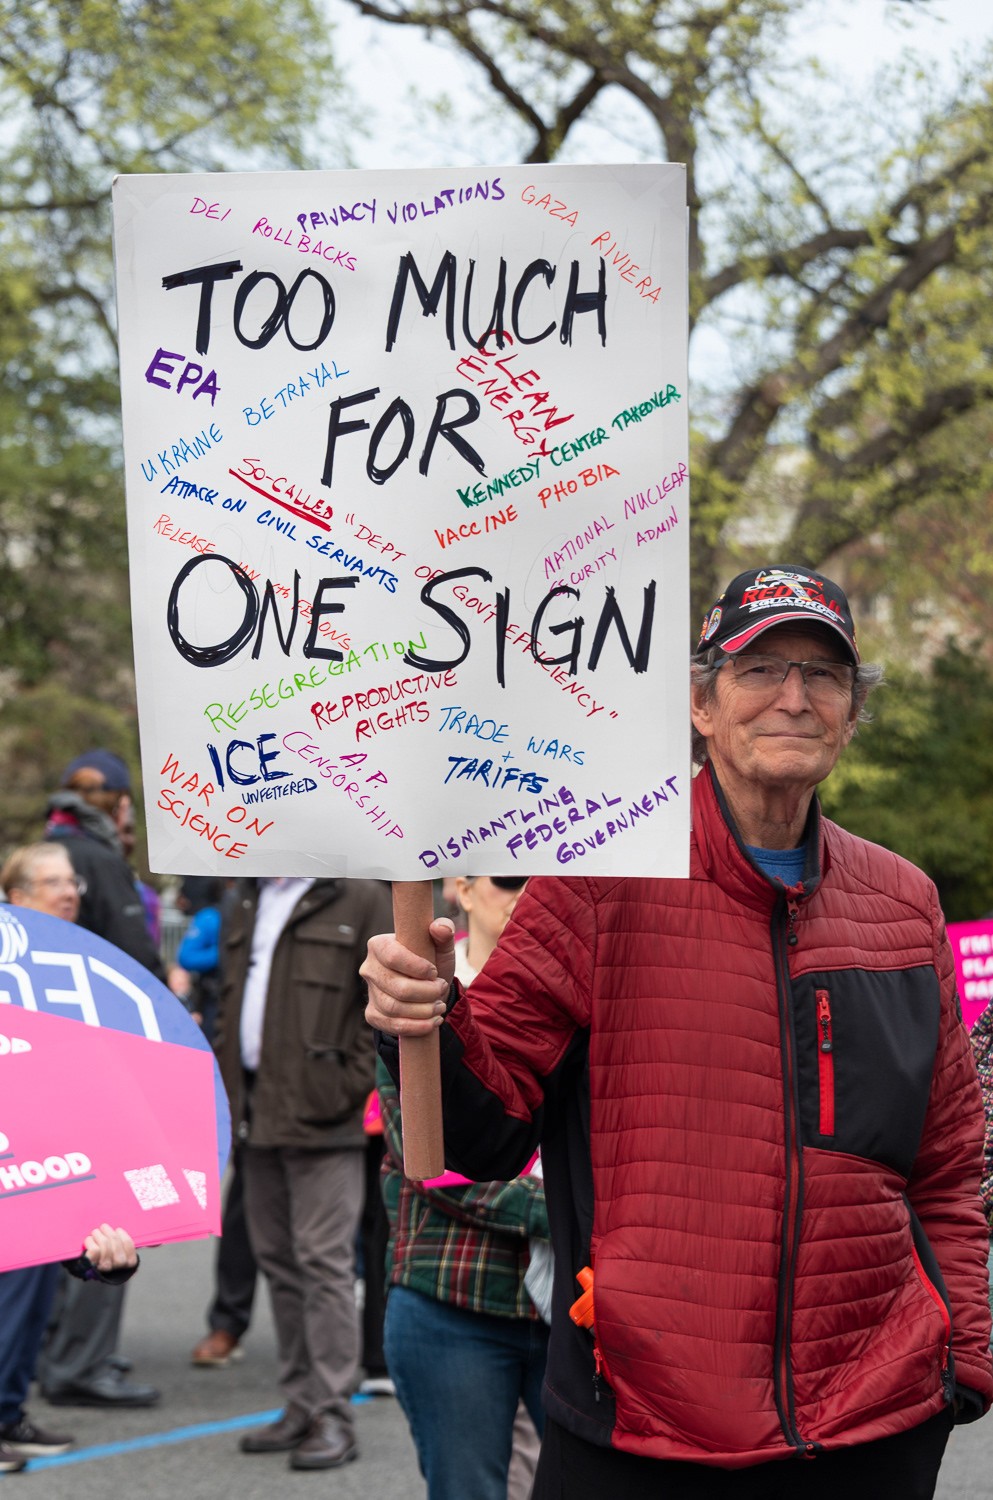 DEI ROLLBACKS
PRIVACY VIOLATIONS
GAZA RIVIERA
TOO MUCH
EPA
UKRAINE BETRAYAL
CLEAN
ENERGY
FOR
KENNEDY CENTER TAKEOVER
VACCINE PHOBIA
ATTACK ON CIVIL SERVANTS
SO-CALLED "DEPT OF GOV'T EFFICIENCY"
NATIONAL NUCLEAR
SECURITY ADMIN
RELEASE FELONS
ONE SIGN
RESEGREGATION
REPRODUCTIVE
RIGHTS
ICE
UNFETTERED
A.P.
CENSORSHIP
TRADE WARS
+
TARIFFS
WAR ON
SCIENCE
DISMANTLING
FEDERAL
GOVERNMENT
RED TAIL
SQUADRON
HOOD
I'M